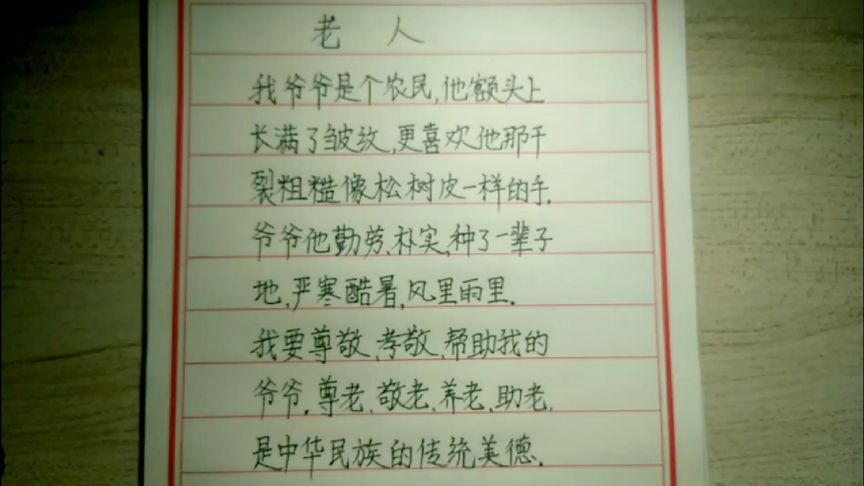 老 人
我爷爷是个农民,他额头上
长满了皱纹,更喜欢他那干
裂粗糙像松树皮一样的手,
爷爷他勤劳、朴实,种了一辈子
地,严寒酷暑,风里雨里.
我要尊敬、孝敬,帮助我的
爷爷,尊老、敬老、养老、助老,
是中华民族的传统美德.